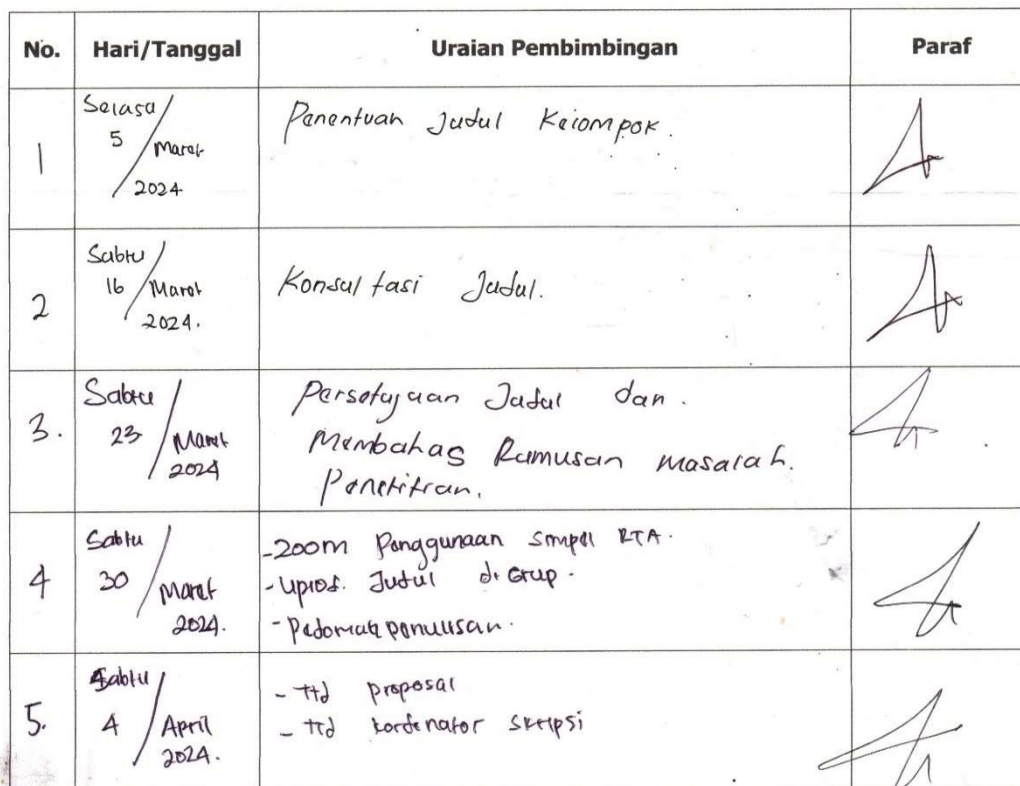 No. Hari/Tanggal Uraian Pembimbingan Paraf
1
Selasa/
5 / Maret
/ 2024
Penentuan Judul Kelompok.
2
Sabtu/
16 / Maret
2024.
Konsultasi Judul.
3.
Sabtu /
23 / Maret
2024
Persetujuan Judul dan.
Membahas Rumusan masalah.
Penelitian.
4
Sabtu /
30 / Maret
2024.
-Zoom Penggunaan Simpel RTA.
-Upload. Judul di Grup.
-Pedoman penulisan.
5.
Sabtu /
4 / April
2024.
- ttd proposal
- ttd kordinator skripsi